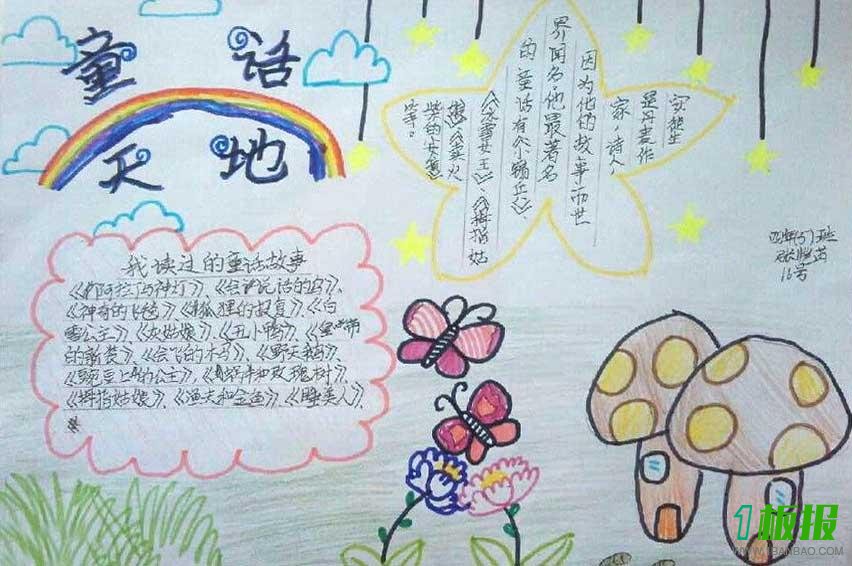 童话
天地
安徒生
是丹麦作
家,诗人
因为他的故事而世
界闻名,他最著名
的童话有《小锡兵》、
《冰雪女王》、《拇指姑
娘》、《卖火
柴的女孩》
等。
我读过的童话故事
《阿拉丁与神灯》、《会说话的鸟》、
《神奇的飞毯》、《狐狸的报复》、《白
雪公主》、《灰姑娘》、《丑小鸭》、《皇帝
的新装》、《会飞的木马》、《野天鹅》、
《豌豆上的公主》、《蜗牛和玫瑰树》、
《拇指姑娘》、《渔夫和金鱼》、《睡美人》、
四年(5)班
16号
1板报
WWW.1BANBAO.COM